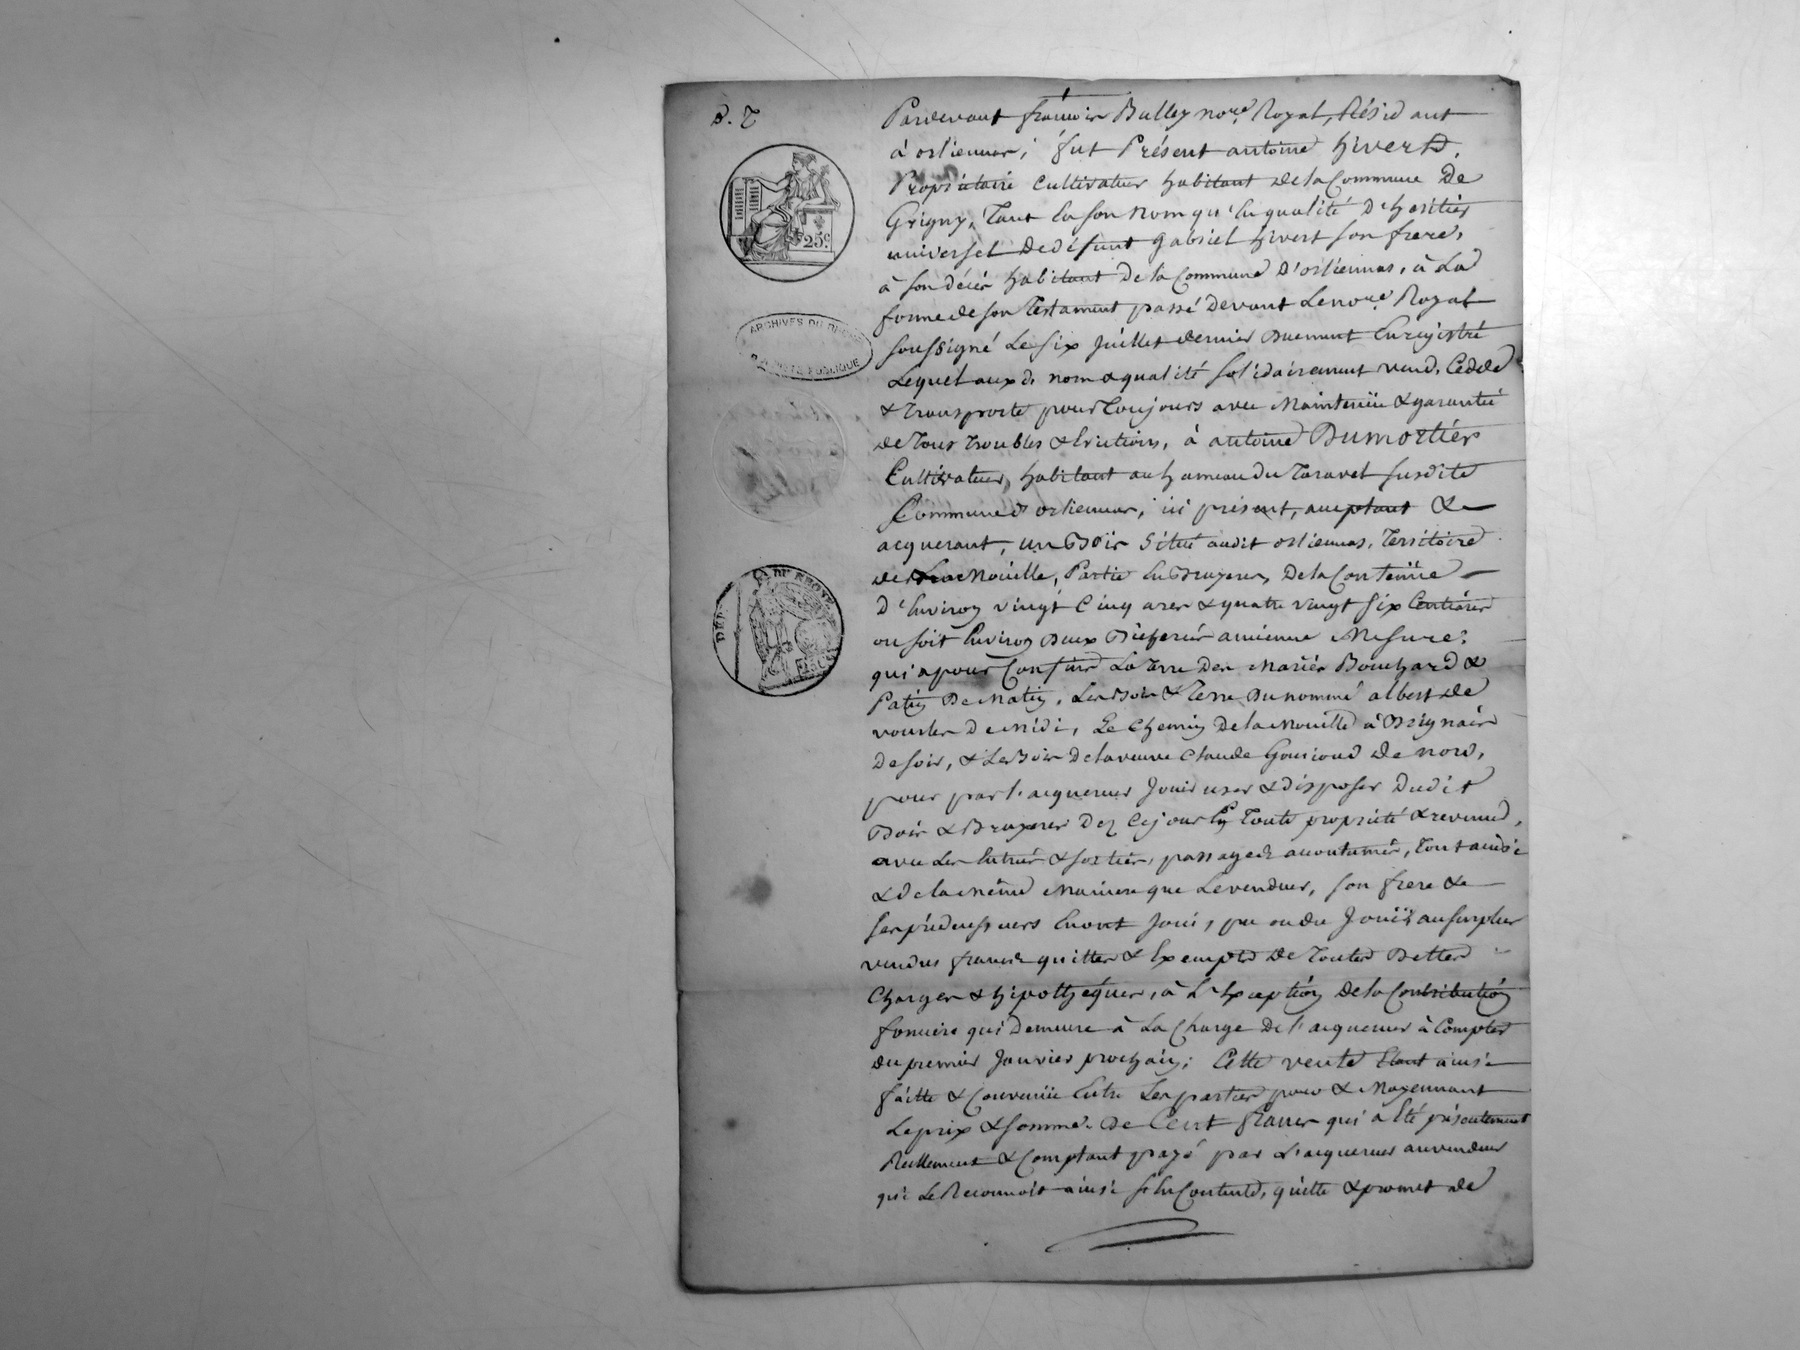 D. T
Pardevant françois Bulley no.re Royal, Résidant
à orliennas; fut Présent antoine hivert,
Propriétaire Cultivateur habitant de la Commune De
Grigny, Tant En son nom qu'En qualité D'heritier
universel De défunt gabriel hivert son frere,
à son décès habitant De la Commune D'orliennas, à La
forme de son Testament passé Devant Le no.re Royal
soussigné Le six Juillet dernier Duement Enregistré
Lequel auxd. nom & qualité solidairement vend, Cedde
& Transporte pour Toujours avec Maintenüe & garantie
de Tous Troubles & Evictions, à antoine Dumortier
Cultivateur, habitant au hameau du Taravel susdite
Commune d'orliennas, ici présent, acceptant &
acquerant, un Bois Situé audit orliennas, Territoire
de La Mouille, Partie En Bruyeres, De la Contenüe
D'Environ vingt Cinq ares & quatre vingt six Centiares
ou soit Environ Deux Bicherées ancienne Mesure;
qui a pour Confins La Terre Des Mariés Bouchard &
Patin De Matin, Les Bois & Terre Du nommé albert de
vourles De Midi, Le Chemin De la Mouille à Brignais
De soir, & Les Bois De la veuve Claude De nord,
pour par l'acquereur Jouir user & disposer Dudit
Bois & Bruyeres Dez Cejour En Toute propriété & revenu,
avec Les Entrées & sorties, passages accoutumés, Tout ainsi
& De la Même Maniere que Le vendeur, son frere &
ses prédecesseurs En ont Joui, pu ou du Jouïr au surplus
vendus francs quittes & Exempts De Toutes Dettes
Charges & hipotheques, à L'Exception De la Contribution
fonciere qui Demeure à La Charge De l'acquereur à Compter
du premier Janvier prochain; Cette vente Etant ainsi
faitte & Convenüe Entre Les parties pour & Moyennant
Le prix & somme De Cent francs qui a Eté présentement
Réellement & Comptant payé par L'acquereur au vendeur
qui Le Reconnoit ainsi s'En Contente, quitte & promet de
25c.
ARCHIVES DU RHONE
PUBLIQUE
DÉP. DU RHONE